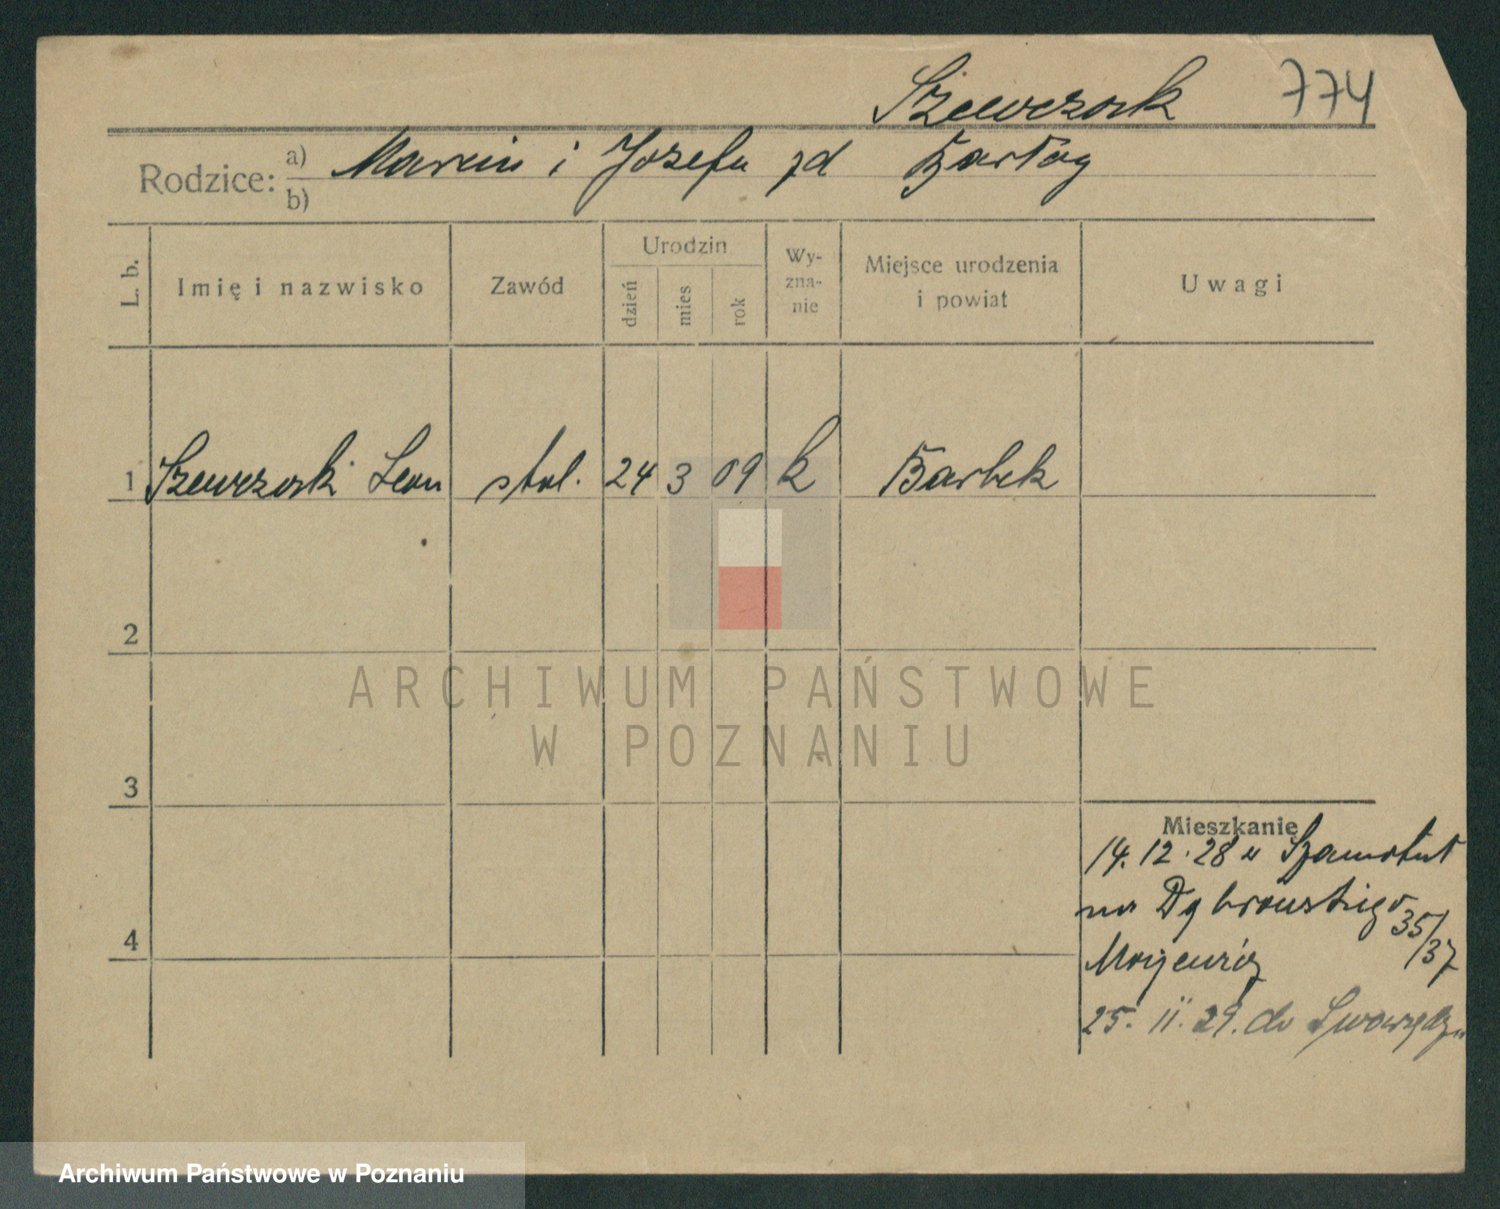 Szewczak 774
Rodzice: a) Marcin i Józefa zd Bartág
b)
L. b. Imię i nazwisko Zawód Urodzin dzień mies rok Wy-zna-nie Miejsce urodzenia i powiat Uwagi
1 Szewczak Leon stol. 24 3 09 k
2
3
4
Mieszkanie
14. 12. 28 z Szamotuł
na Dąbrowskiego 35/37
25. II. 29. do Swarzędza
ARCHIWUM PAŃSTWOWE
W POZNANIU
Archiwum Państwowe w Poznaniu